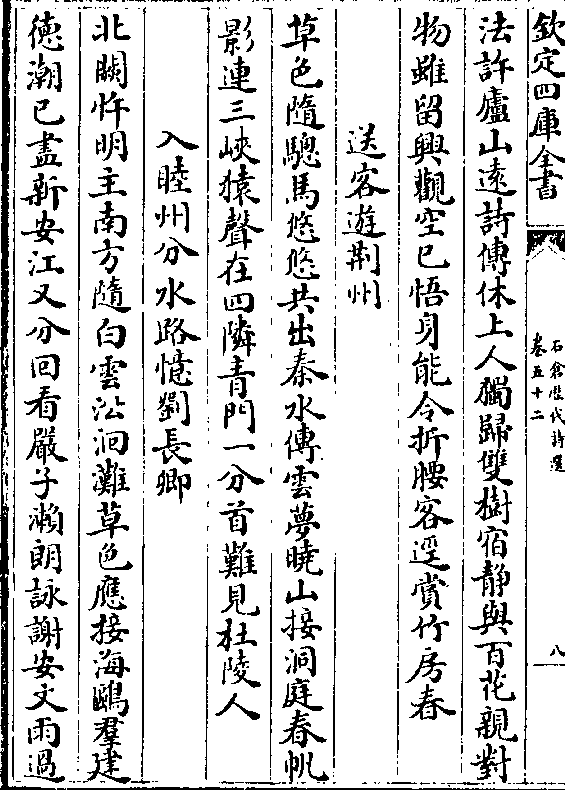 欽定四庫全書
石倉歷代詩選
卷五十二
八
法許廬山逺詩傳休上人獨歸雙樹宿静與百花親對
物雖留興觀空已悟身能令折腰客遥賞竹房春
送客遊荆州
草色隨驄馬悠悠共出秦水傳雲夢曉山接洞庭春帆
影連三峽猿聲在四隣青門一分首難見杜陵人
入睦州分水路憶劉長卿
北闕忤明主南方隨白雲沿洄灘草色應接海鷗羣建
德潮已盡新安江又分回看嚴子瀬朗詠謝安文雨過